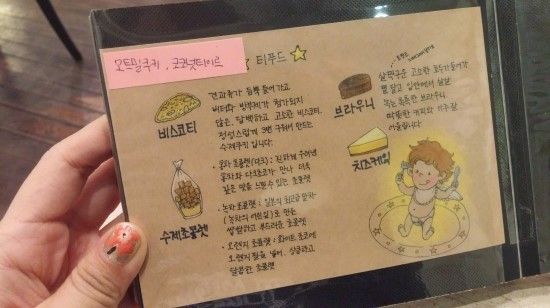 오트밀쿠키, 코코넛타이르
티푸드
비스코티
견과류가 듬뿍 들어가고
버터와 방부제가 첨가되지
않은, 담백하고 고소한 비스코티.
정성스럽게 2번 구워서 만드는
수제쿠키 입니다.
수제초콜렛
· 홍차 초콜렛(다크) : 진하게 우려낸
홍차와 다크초코가 만나 더욱
깊은 맛을 느낄수 있는 초콜렛
· 녹차 초콜렛 : 일본의 최고급 말차
(녹차의 어린잎)로 만든
쌉쌀하고 부드러운 초콜렛
· 오렌지 초콜렛 : 화이트 초코에
오렌지 필을 넣어, 상큼하고
달콤한 초콜렛
브라우니
살짝구운 고소한 호두가들어가
빵 말고 입안에서 살살
녹는 촉촉한 브라우니.
따뜻한 커피와 아주 잘
어울립니다.
치즈케익